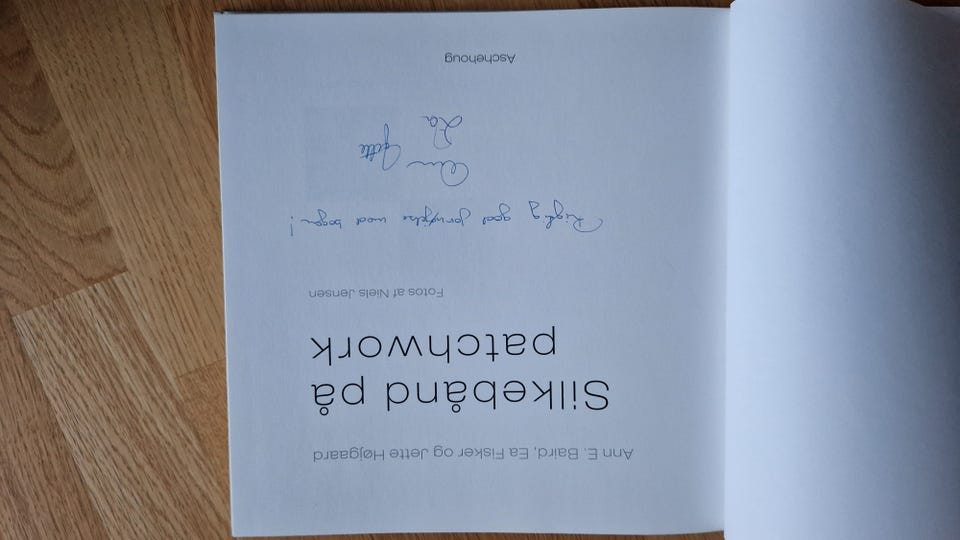 Ann E. Baird, Ea Fisker og Jette Højgaard
Silkebånd på
patchwork
Fotos af Niels Jensen
Rigtig god fornøjelse med bogen!
Ann
Jette
Ea
Aschehoug